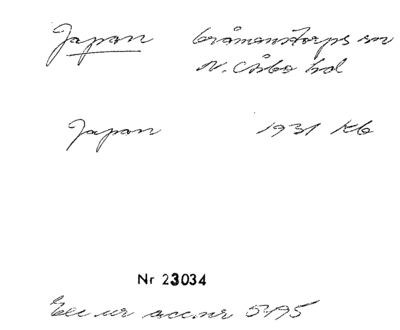 Japan Gråmanstorps sn
N. Åsbo hd
Japan 1931 Kb
Nr 23034
Exc ur acc.nr 5495